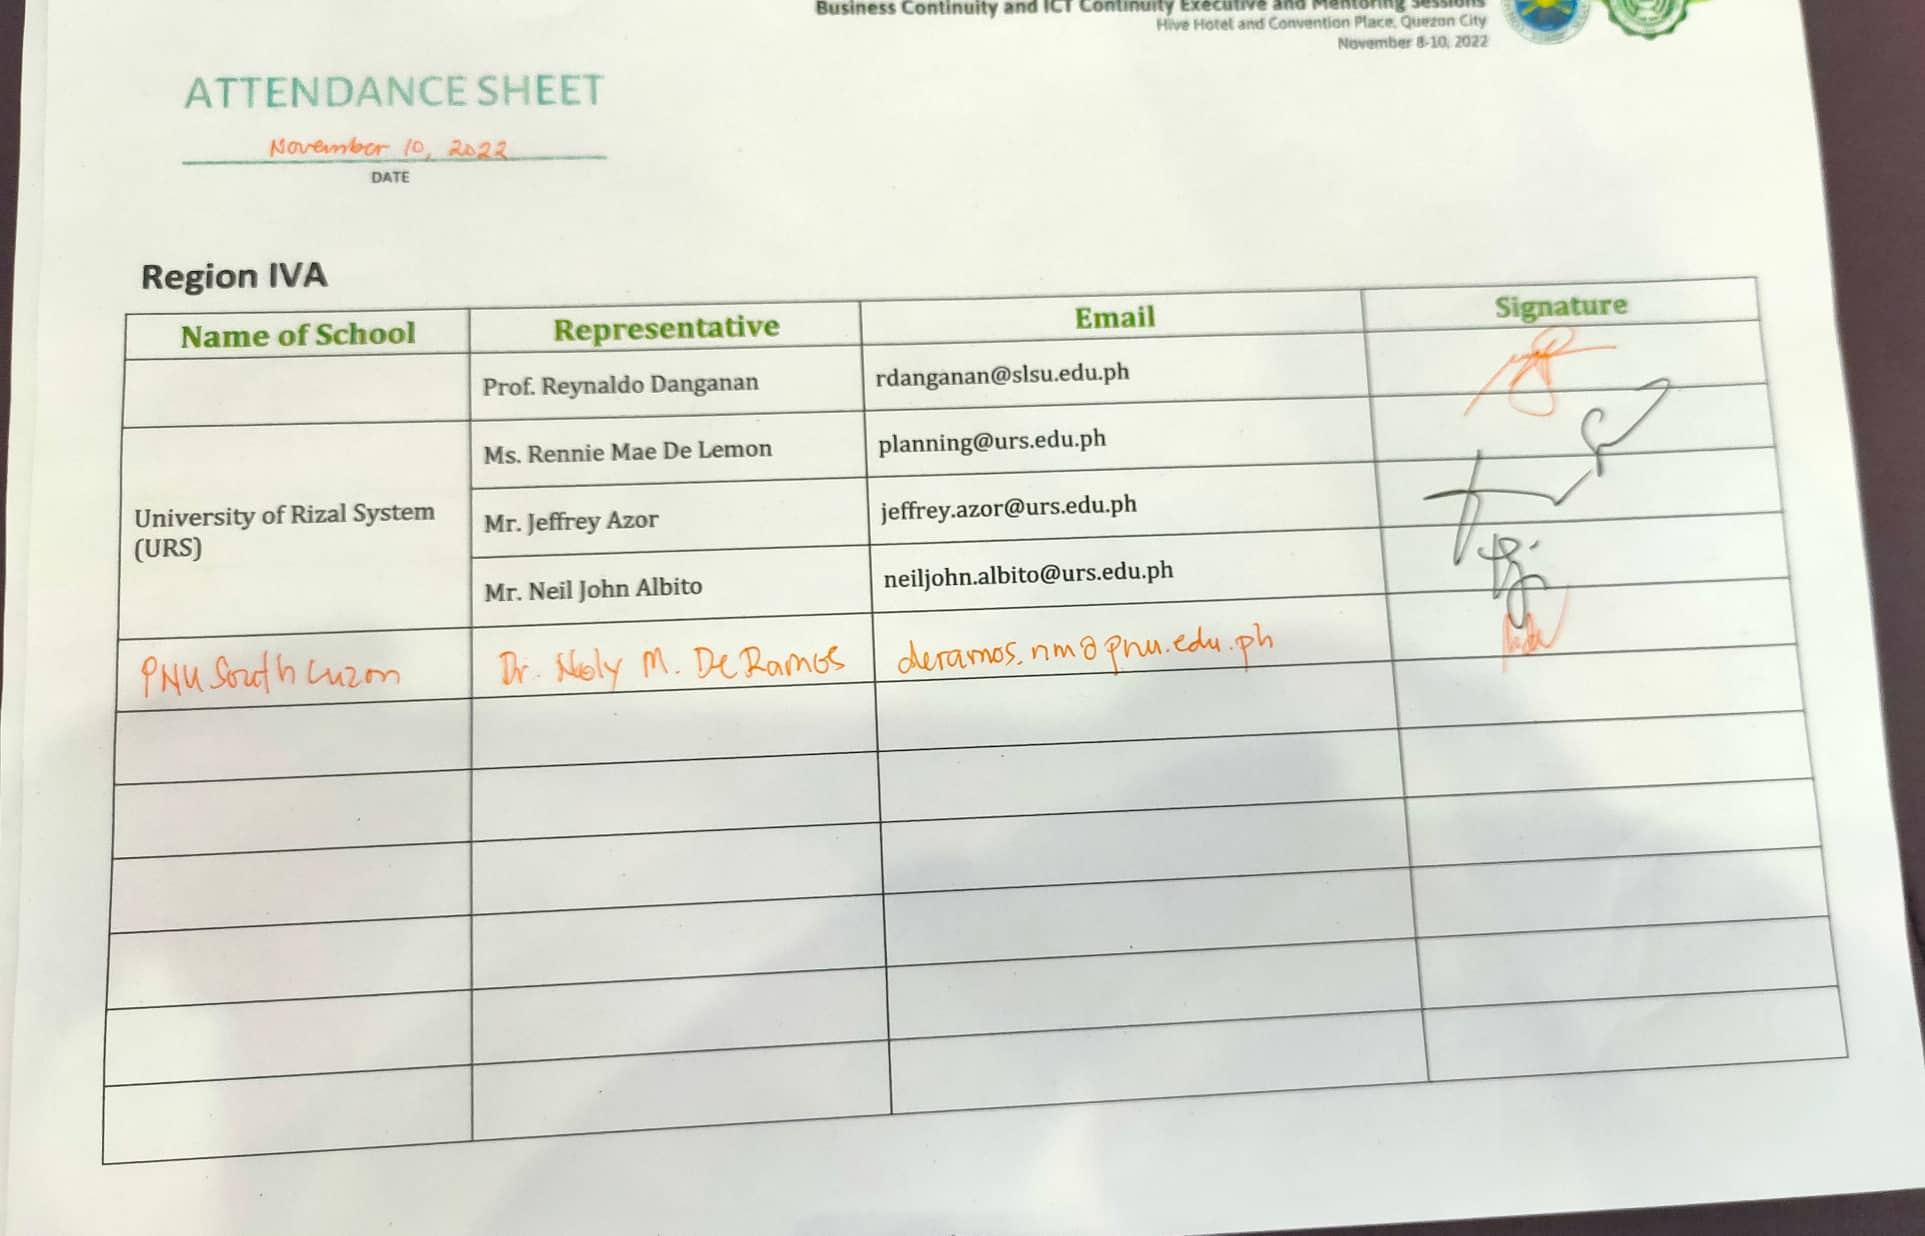 Business Continuity and ICT Continuity Executive and Mentoring Sessions
Hive Hotel and Convention Place, Quezon City
November 8-10, 2022
ATTENDANCE SHEET
November 10, 2022
DATE
Region IVA
Name of School Representative Email Signature
Prof. Reynaldo Danganan rdanganan@slsu.edu.ph
Ms. Rennie Mae De Lemon planning@urs.edu.ph
University of Rizal System
(URS)
Mr. Jeffrey Azor jeffrey.azor@urs.edu.ph
Mr. Neil John Albito neiljohn.albito@urs.edu.ph
PNU South Luzon Dr. Noly M. De Ramos deramos.nm@pnu.edu.ph